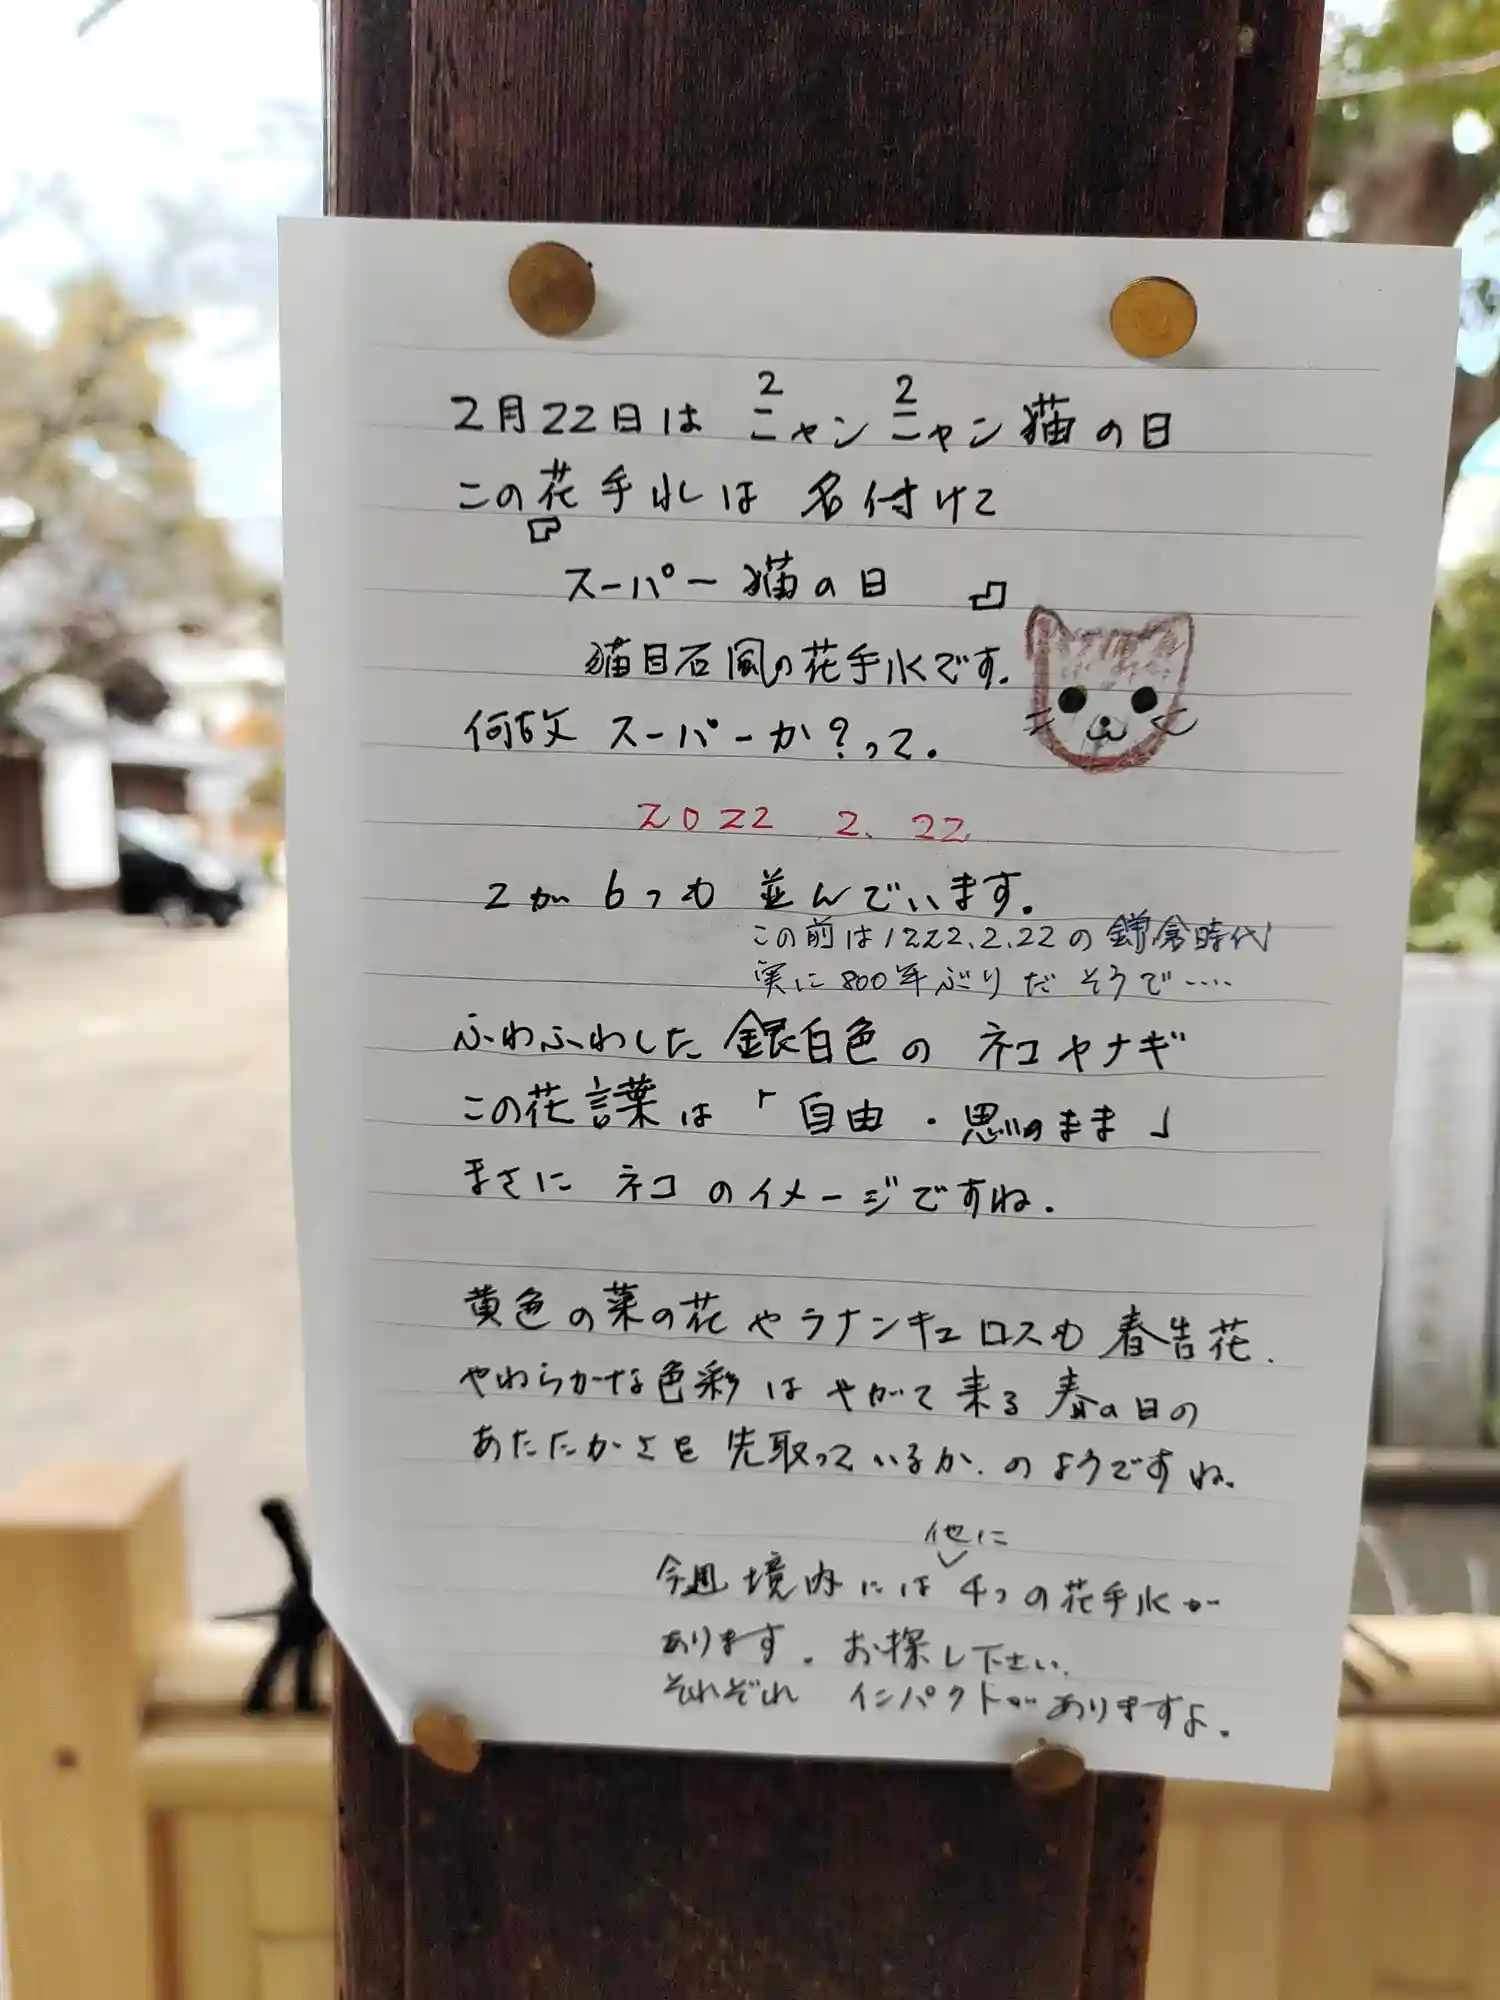 2月22日は ニャン ニャン 猫の日
2 2
この花手水は 名付けて
『スーパー猫の日』
猫目石風の花手水です。
何故 スーパーか?って。
2022 2. 22
2が6つも 並んでいます。
この前は1222.2.22の鎌倉時代
実に800年ぶりだそうで‥‥
ふわふわした銀白色の ネコヤナギ
この花言葉は「自由・思いのまま」
まさに ネコのイメージですね.
黄色の菜の花やラナンキュロスも春告花.
やわらかな色彩は やがて来る春の日の
あたたかさを先取っているか.のようですね.
他に
今週境内には 4つの花手水が
あります.お探し下さい.
それぞれ インパクトがありますよ.